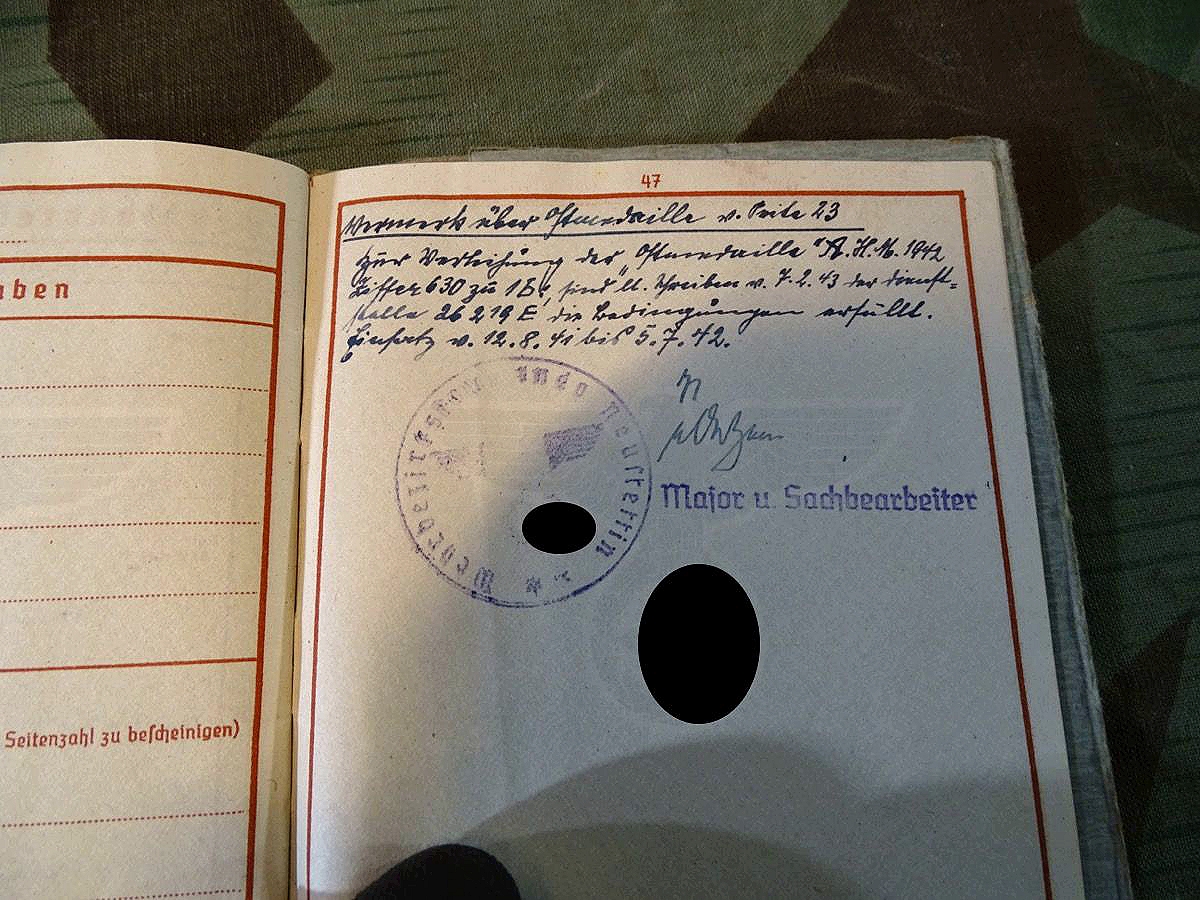 47
Vermerk über Ostmedaille v. Seite 23
Zur Verleihung der "Ostmedaille" A.H.M. 1942
Ziffer 630 zu 1B, sind lt. Schreiben v. 7.2.43 der Dienst=
stelle 26219 E die Bedingungen erfüllt.
Einsatz v. 12.8.41 bis 5.7.42.
Wehrbezirkskommando Neustettin
Major u. Sachbearbeiter
aben
Seitenzahl zu bescheinigen)